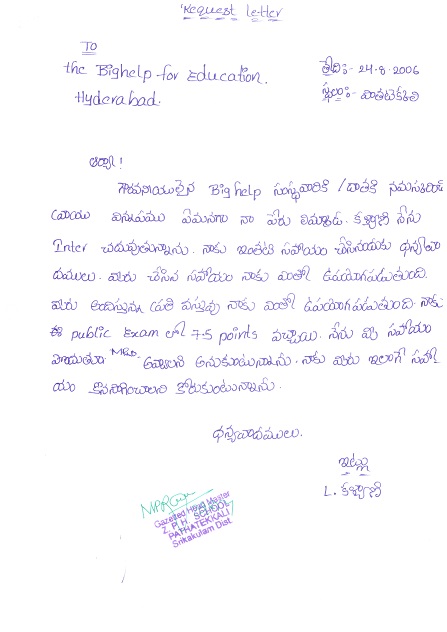 Request letter
To
the Bighelp for Education.
Hyderabad.
తేది:- 24-8-2006
స్థలం:-
ఆర్యా!
గౌరవనీయులైన Big help సంస్థవారికి / దాతకి నమస్కరించి
వ్రాయు విన్నపము ఏమనగా నా పేరు కళ్యాణి నేను
Inter చదువుతున్నాను. నాకు ఇంతటి సహాయం చేసినందుకు ధన్యవా
దములు. మీరు చేసిన సహాయం నాకు ఎంతో ఉపయోగపడుతుంది.
మీరు అందిస్తున్న ప్రతి వస్తువు నాకు ఎంతో ఉపయోగపడుతుంది. నాకు
ఈ public Exam లో 75 points వచ్చాయి. నేను మీ సహాయం
అవ్వాలని అనుకుంటున్నాను. నాకు మీరు ఇలాగే సహా
యం కొనసాగించాలని కోరుకుంటున్నాను.
ధన్యవాదములు.
ఇట్లు
L. కళ్యాణి
Gazetted Head Master
Z. P. H. SCHOOL
PATHATEKKALI
Srikakulam Dist.